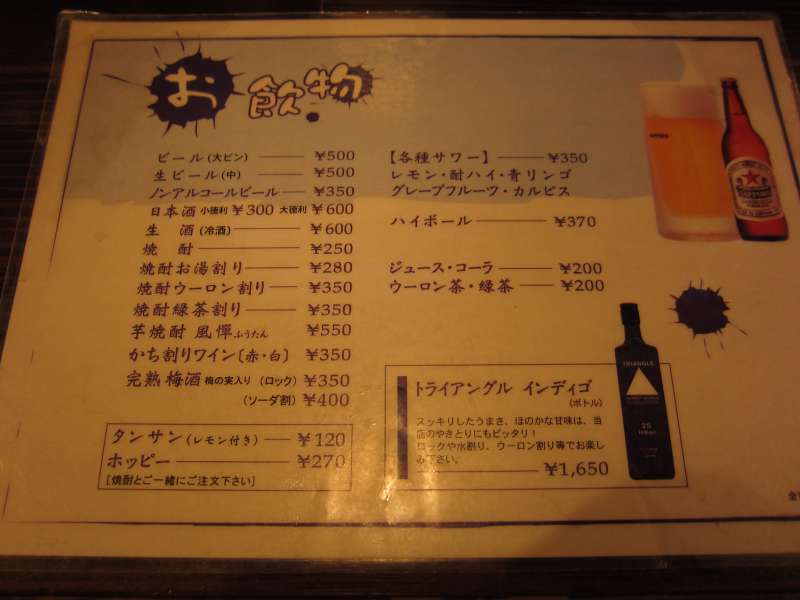 お飲物
ビール(大ビン) ¥500
生ビール(中) ¥500
ノンアルコールビール ¥350
日本酒 小徳利 ¥300 大徳利 ¥600
生酒(冷酒) ¥600
焼酎 ¥250
焼酎お湯割り ¥280
焼酎ウーロン割り ¥350
焼酎緑茶割り ¥350
芋焼酎 風憚ふうたん ¥550
かち割りワイン〔赤・白〕 ¥350
完熟梅酒 梅の実入り (ロック) ¥350
(ソーダ割) ¥400
タンサン(レモン付き) ¥120
ホッピー ¥270
[焼酎とご一緒にご注文下さい]
【各種サワー】 ¥350
レモン・酎ハイ・青リンゴ
グレープフルーツ・カルピス
ハイボール ¥370
ジュース・コーラ ¥200
ウーロン茶・緑茶 ¥200
トライアングル インディゴ
(ボトル)
スッキリしたうまさ、ほのかな甘味は、当
店のやきとりにもピッタリ!
ロックや水割り、ウーロン割り等でお楽し
み下さい。
¥1,650
TRIANGLE
25